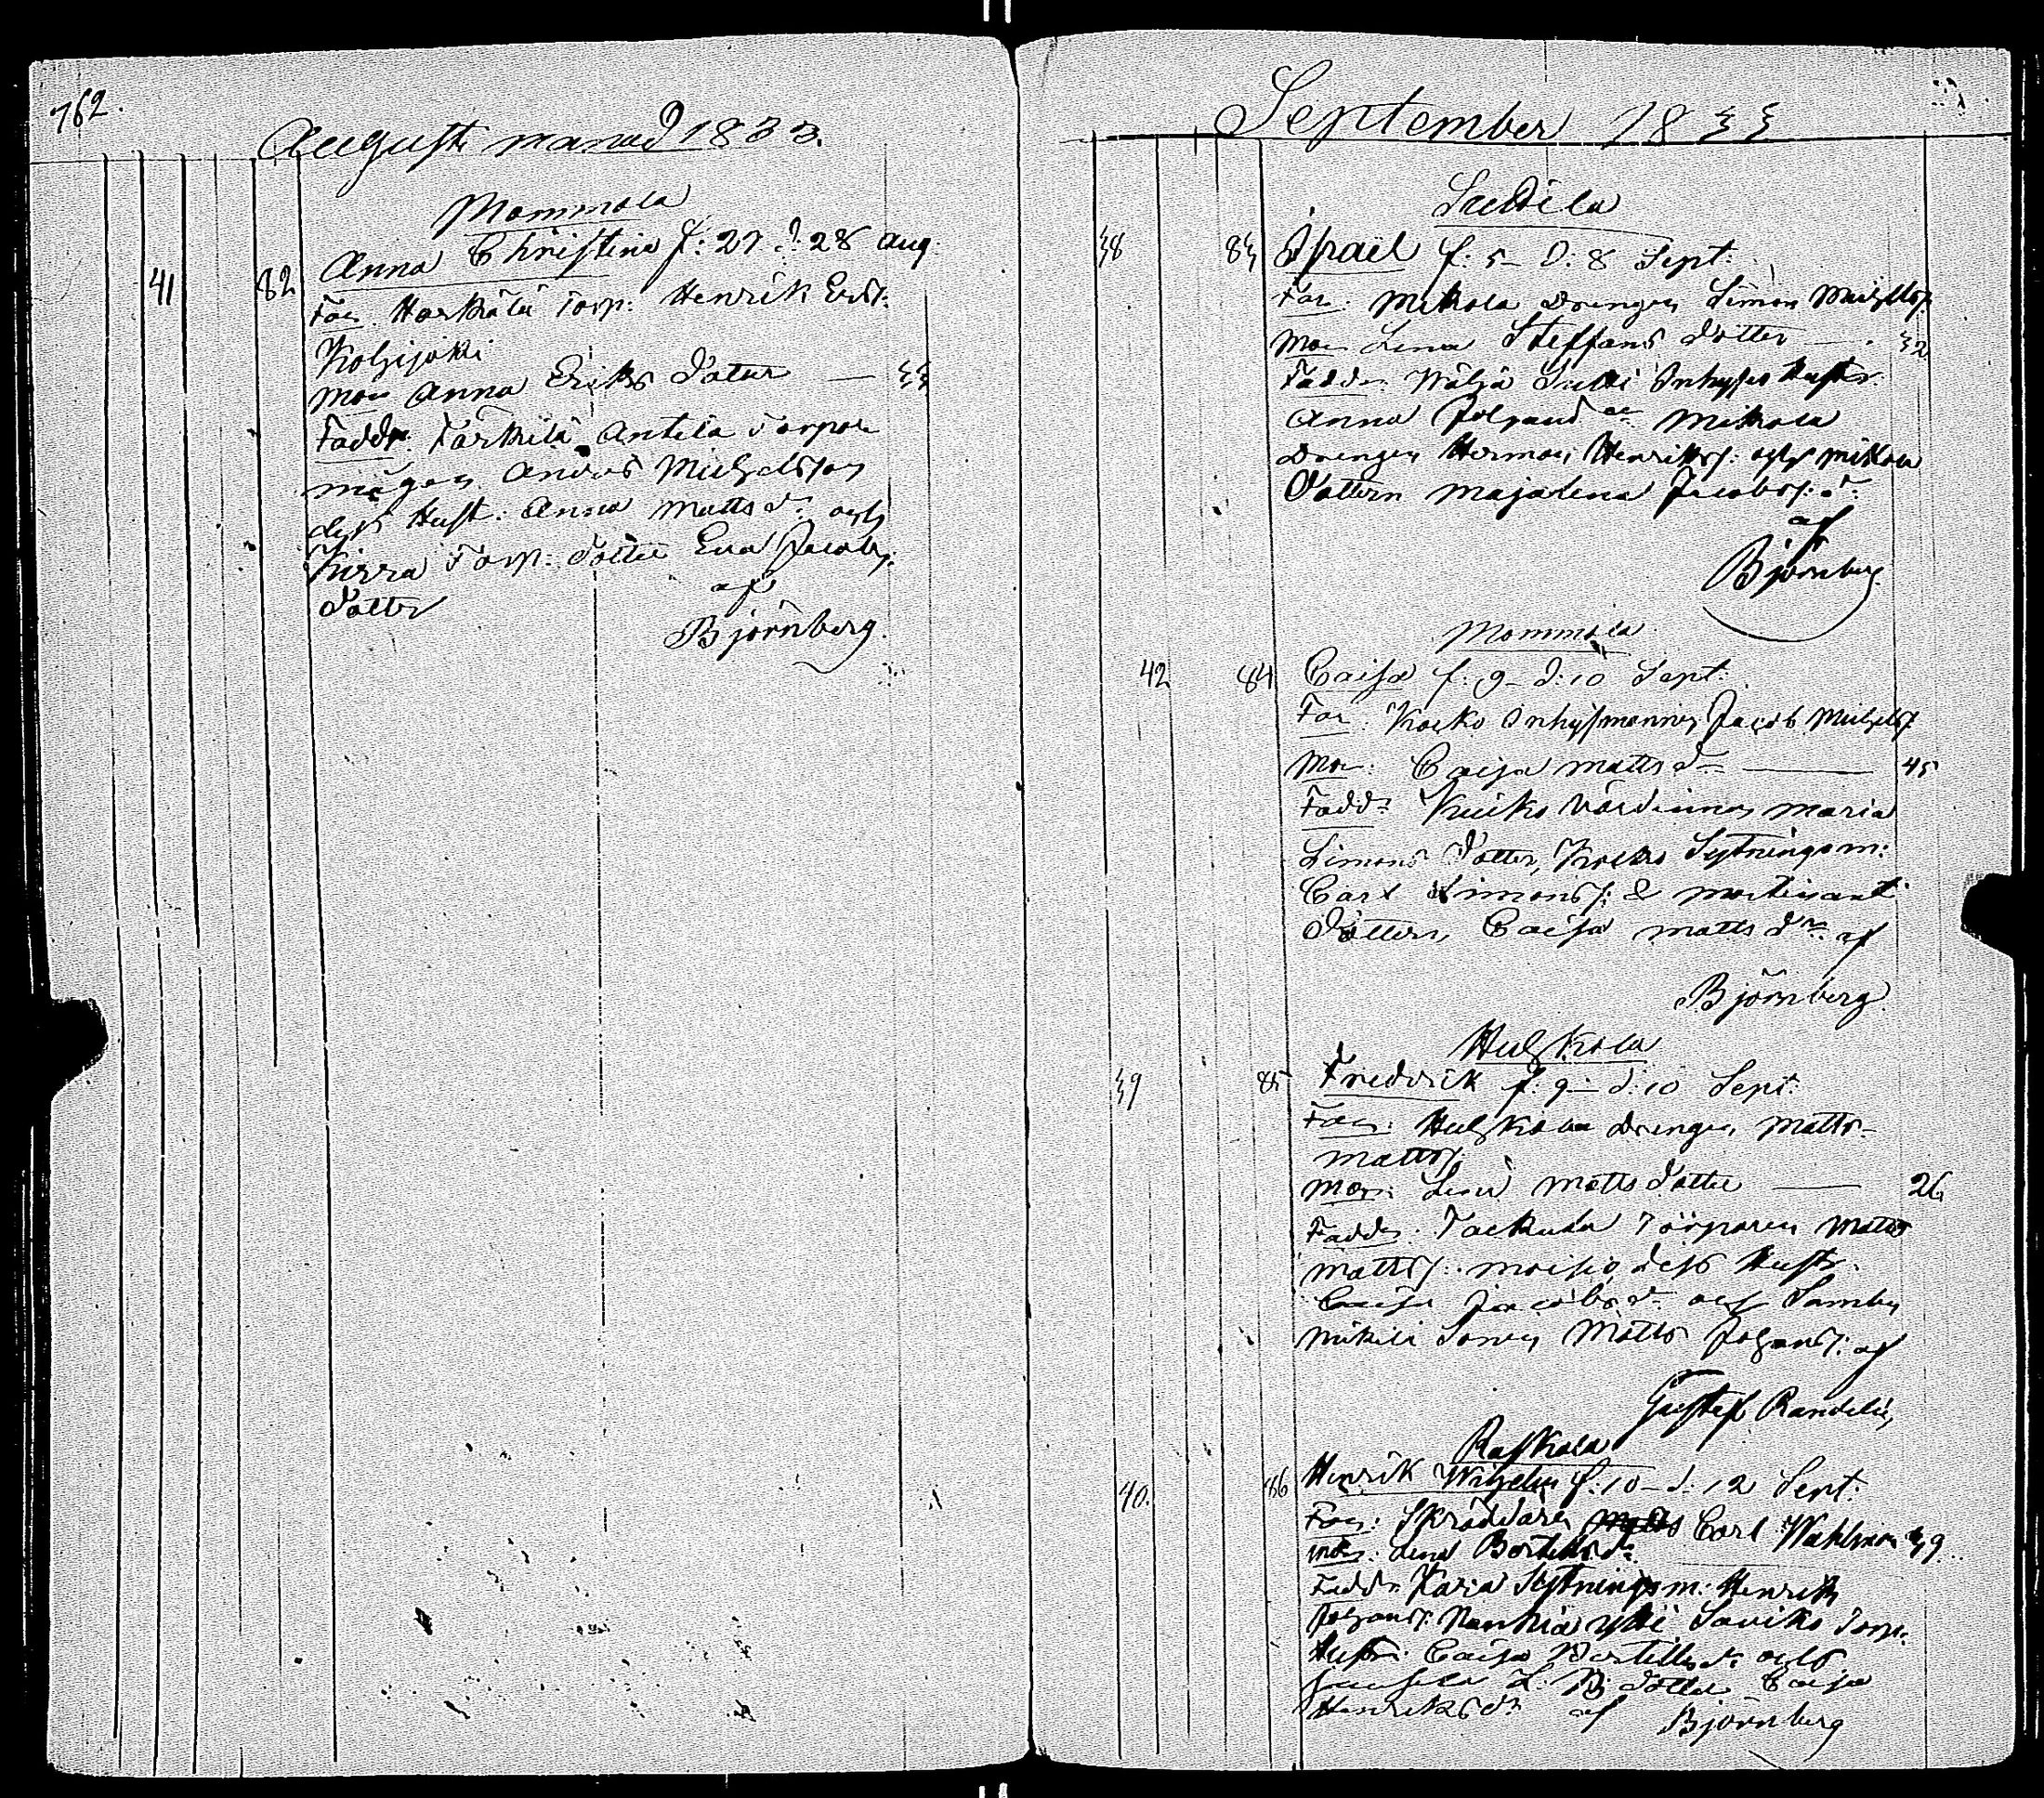 762.
August månad 1833.
Mommola
41 82 Anna Christina f: 27 d: 28 Aug.
Far. Harkälä Torp: Henrik Ers:
Kolsijoki
Mor Anna Eriks Dotter — 33
Faddr: Tarkila Antila Torpare
mågen Anders Michelsson
dess Hust: Anna Matts dr och
Kirra Torp: Dotter Eva Jacobs
Dotter af
Björnberg.
September 1833
38 83 Israel f: 5 – d: 8 Sept:
Far: Mikola Drengen Simon Michels:
Mor Lena Steffans Dotter — 32
Faddr. Inhyses Hustr.
Anna Johans dr Mikola
Drengen Herman Henriks: och Mikola
Dottern Majalena Jacobs: dr
af
Björnberg
Mommola
42 84 Caisa f: 9 – d: 10 Sept:
Far: Inhysmannen Jacob Michels:
Mor: Caisa Matts dr — 45
Faddr: Värdinnan Maria
Simons Dotter, Sytningsm:
Carl Simons: &
Dottern Caisa Matts dr af
Björnberg
Huhkola
39 85 Fredrik f: 9 – d: 10 Sept:
Far: Huhkola Drengen Matts
Matts:
Mor: Lena Matts Dotter — 26
Faddr: Torparen Matts
Matts: Moisio dess Hustr.
Caisa Jacobs dr och
Mikila Sonen Matts Johans: af
Gustaf Randelin
Raskala
40. 86 Henrik Wilhelm f: 10 – d: 12 Sept:
Far: Skräddaren Carl Wahlman 39
Mor: Lena Bertils dr
Faddr. Sytningsm: Henrik
Johans: Torp:
Hustr: Caisa Bertils dr och
Dotter Caisa
Henriks dr af Björnberg